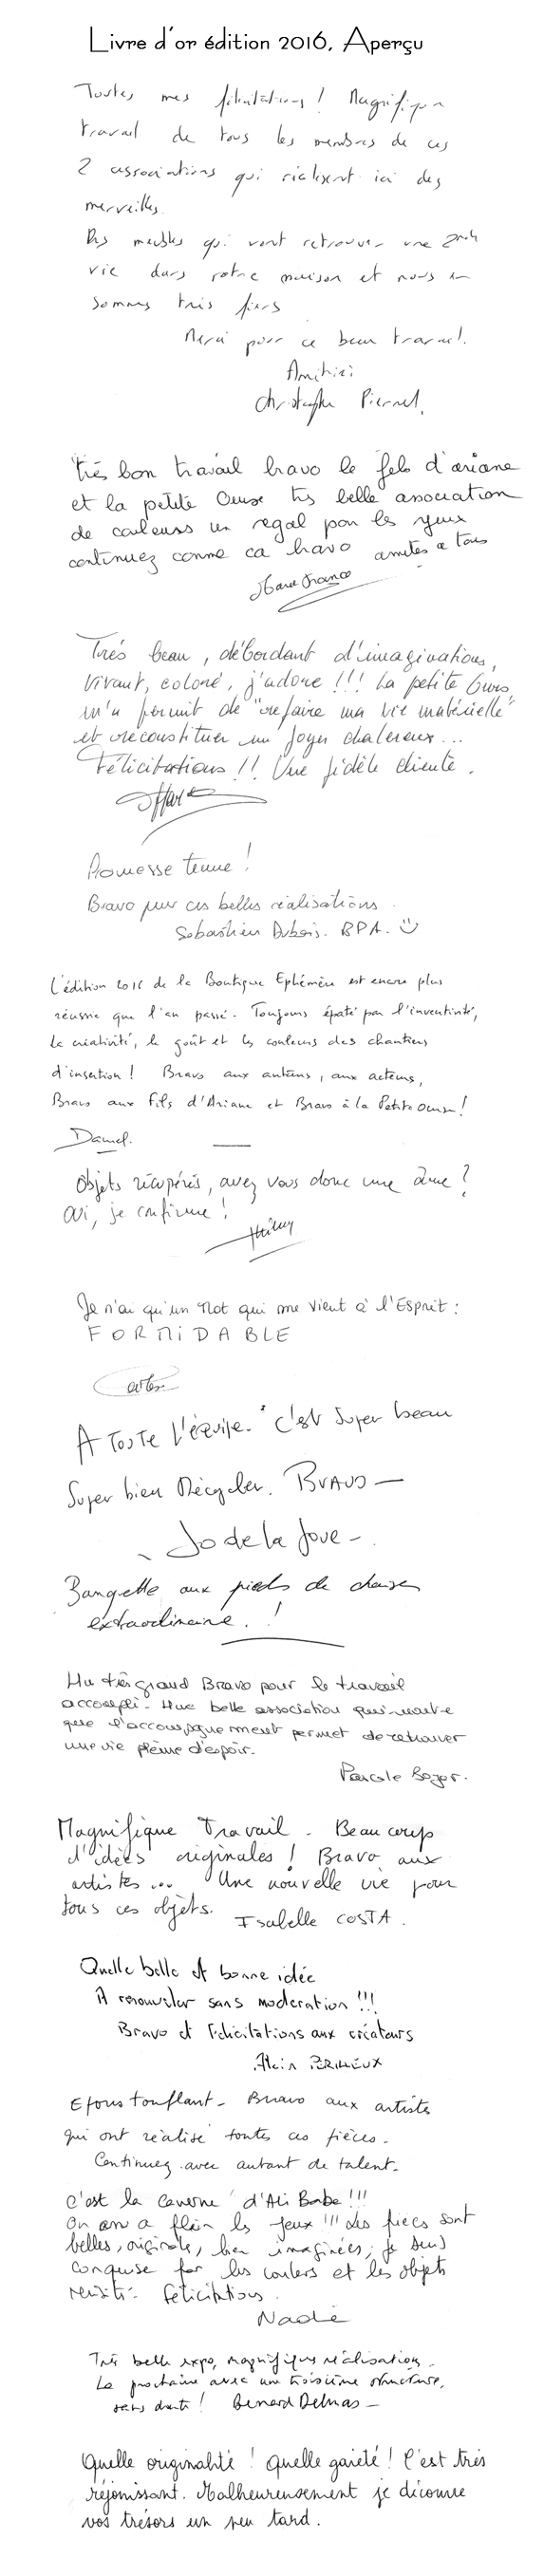 Livre d'or édition 2016, Aperçu
Toutes mes félicitations ! Magnifique
travail de tous les membres de ces
2 associations qui réalisent ici des
merveilles.
Des meubles qui vont retrouver une 2nde
vie dans notre maison et nous en
sommes très fiers
Merci pour ce beau travail.
Amitiés
Christophe
très bon travail bravo le fils d'ariane
et la petite Ourse très belle association
de couleurs un regal pour les yeux
continuez comme ca bravo amities a tous
Marie France
Très beau, débordant d'imaginations,
Vivant, coloré, j'adore !!! La petite Ourse
m'a permit de "refaire ma vie matérielle"
et reconstituer un foyer chaleureux...
Félicitations !! Une fidèle cliente.
Promesse tenue !
Bravo pour ces belles réalisations.
Sebastien Dubois. BPA.
L'édition 2016 de la Boutique Ephémère est encore plus
réussie que l'an passé. Toujours épaté par l'inventivité,
la créativité, le goût et les couleurs des chantiers
d'insertion ! Bravo aux auteurs, aux acteurs,
Bravo aux Fils d'Ariane et Bravo à la Petite Ourse !
Daniel.
Objets récupérés, avez vous donc une âme ?
Oui, je confirme !
Thierry
Je n'ai qu'un Mot qui me vient à l'Esprit :
FORMIDABLE
A Toute l'équipe. C'est super beau
Super bien Recycler. BRAVO —
Jo de la Joue -
Banquette aux pieds de chaises
extraordinaire. !
Un très grand Bravo pour le travail
accompli. Une belle association qui montre
que l'accompagnement permet de retrouver
une vie pleine d'espoir.
Pascale Boyer.
Magnifique Travail. Beaucoup
d'idées originales ! Bravo aux
artistes... Une nouvelle vie pour
tous ces objets. Isabelle COSTA.
Quelle belle et bonne idée
A renouveler sans moderation !!!
Bravo et Félicitations aux créateurs
Alain PERILLEUX
Epoustouflant - Bravo aux artistes
qui ont réalisé toutes ces pièces.
Continuez avec autant de talent.
C'est la caverne d'Ali Baba !!!
On en a plein les yeux !!! Les pièces sont
belles, originales, bien imaginées, je suis
conquise par les couleurs et les objets
revisités. Félicitations.
Nadie
Très belle expo, magnifiques réalisations.
La prochaine avec une troisième structure,
sans doute ! Bernard Delmas —
Quelle originalité ! Quelle gaieté ! C'est très
réjouissant. Malheureusement je découvre
vos trésors un peu tard.